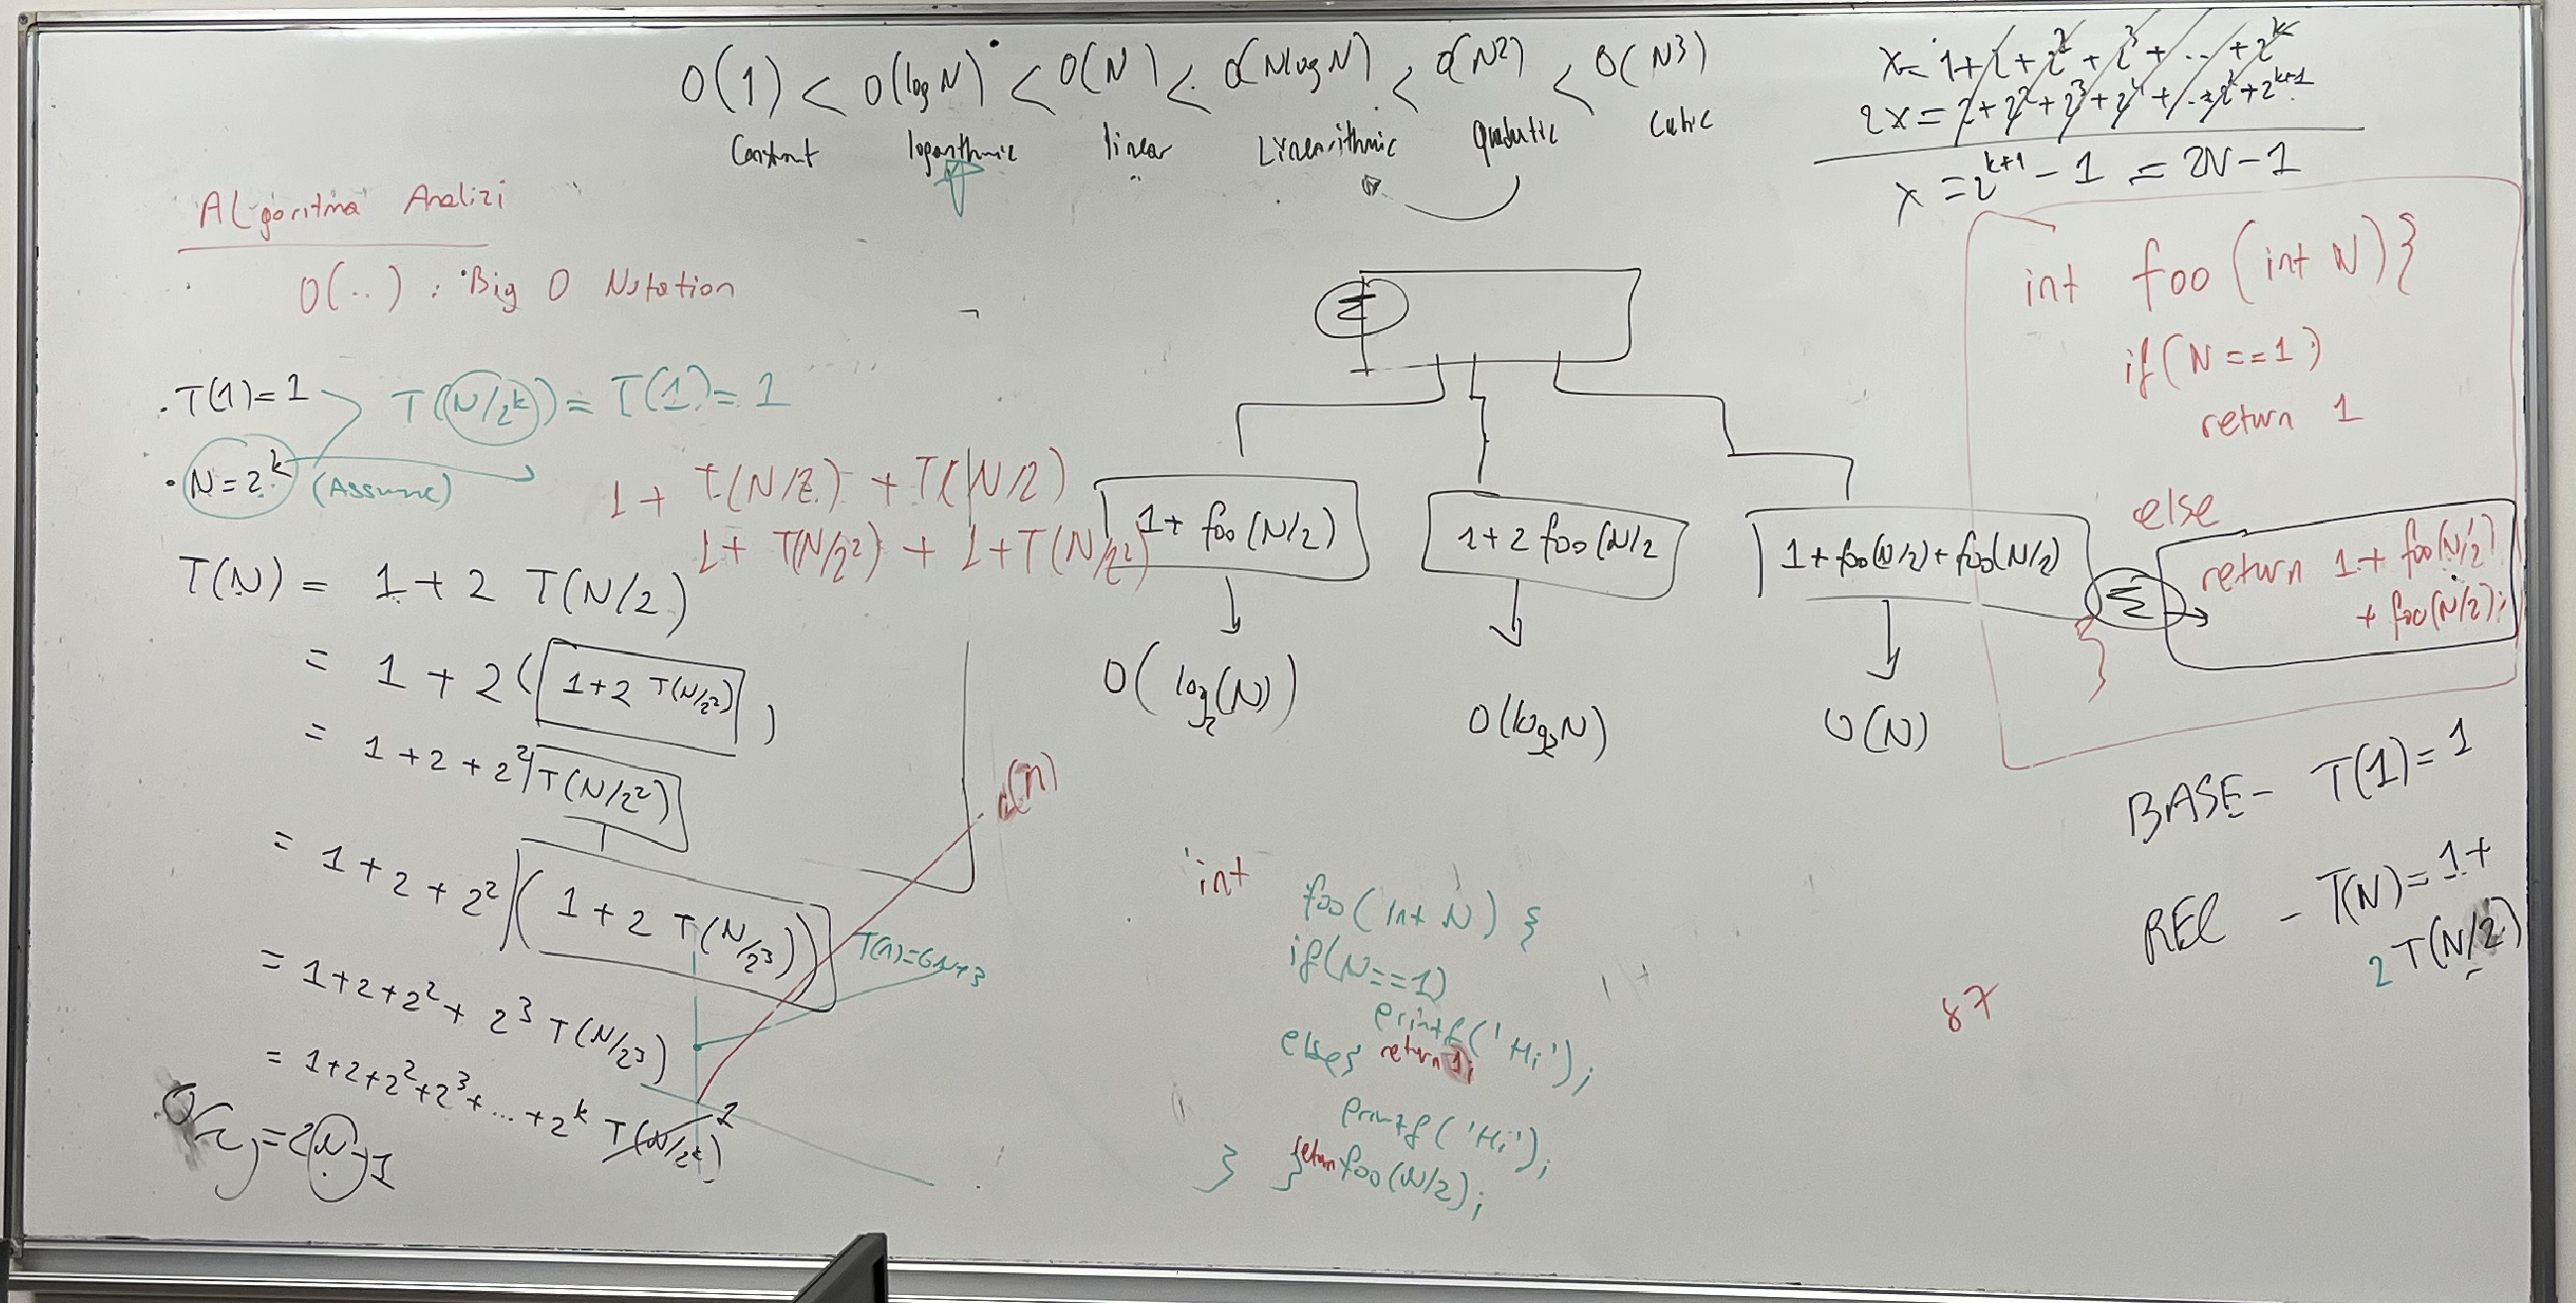 O(1) < O(logN) < O(N) < O(NlogN) < O(N2) < O(N3)
Constant logarithmic linear Linearithmic quadratic cubic
x = 1 + 2 + 2^2 + 2^3 + ... + 2^k
2x = 2 + 2^2 + 2^3 + 2^4 + ... + 2^k + 2^k+1
x = 2^k+1 - 1 = 2N - 1
ALgoritma Analizi
O(..) : Big O Notation
T(1) = 1
T(N/2^k) = T(1) = 1
N = 2^k (Assume)
1 + T(N/2) + T(N/2)
1 + T(N/2^2) + 1 + T(N/2^2)
T(N) = 1 + 2 T(N/2)
= 1 + 2 (1+2 T(N/2^2))
= 1 + 2 + 2^2 T(N/2^2)
= 1 + 2 + 2^2 (1 + 2 T(N/2^3))
= 1+2+2^2+ 2^3 T(N/2^3)
= 1+2+2^2+2^3+...+2^k T(N/2^k) 1
= 2N-1
T(n)=6N+3
1+ foo(N/2)
1+2 foo(N/2
1+foo(N/2)+foo(N/2)
O(log2(N))
O(log2N)
O(N)
int foo (int N) }
if(N==1)
return 1
else
return 1+ foo(N/2)
+ foo(N/2);
}
BASE - T(1) = 1
REC - T(N) = 1+
2 T(N/2)
87
int
foo (int N) {
if(N==1)
printf('Hi');
else{ return 1;
printf('Hi');
} } return foo(N/2);